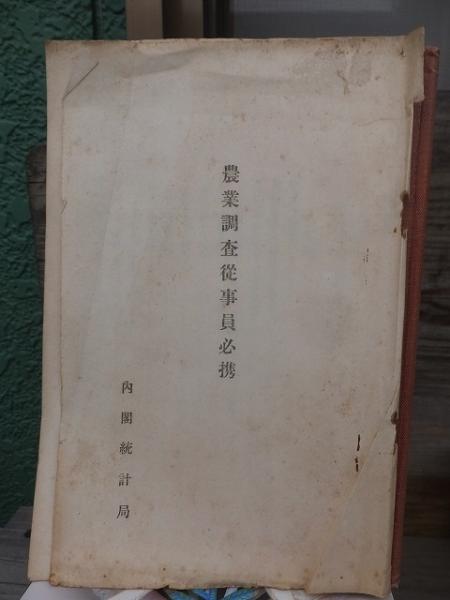 農業調査從事員必携
內閣統計局